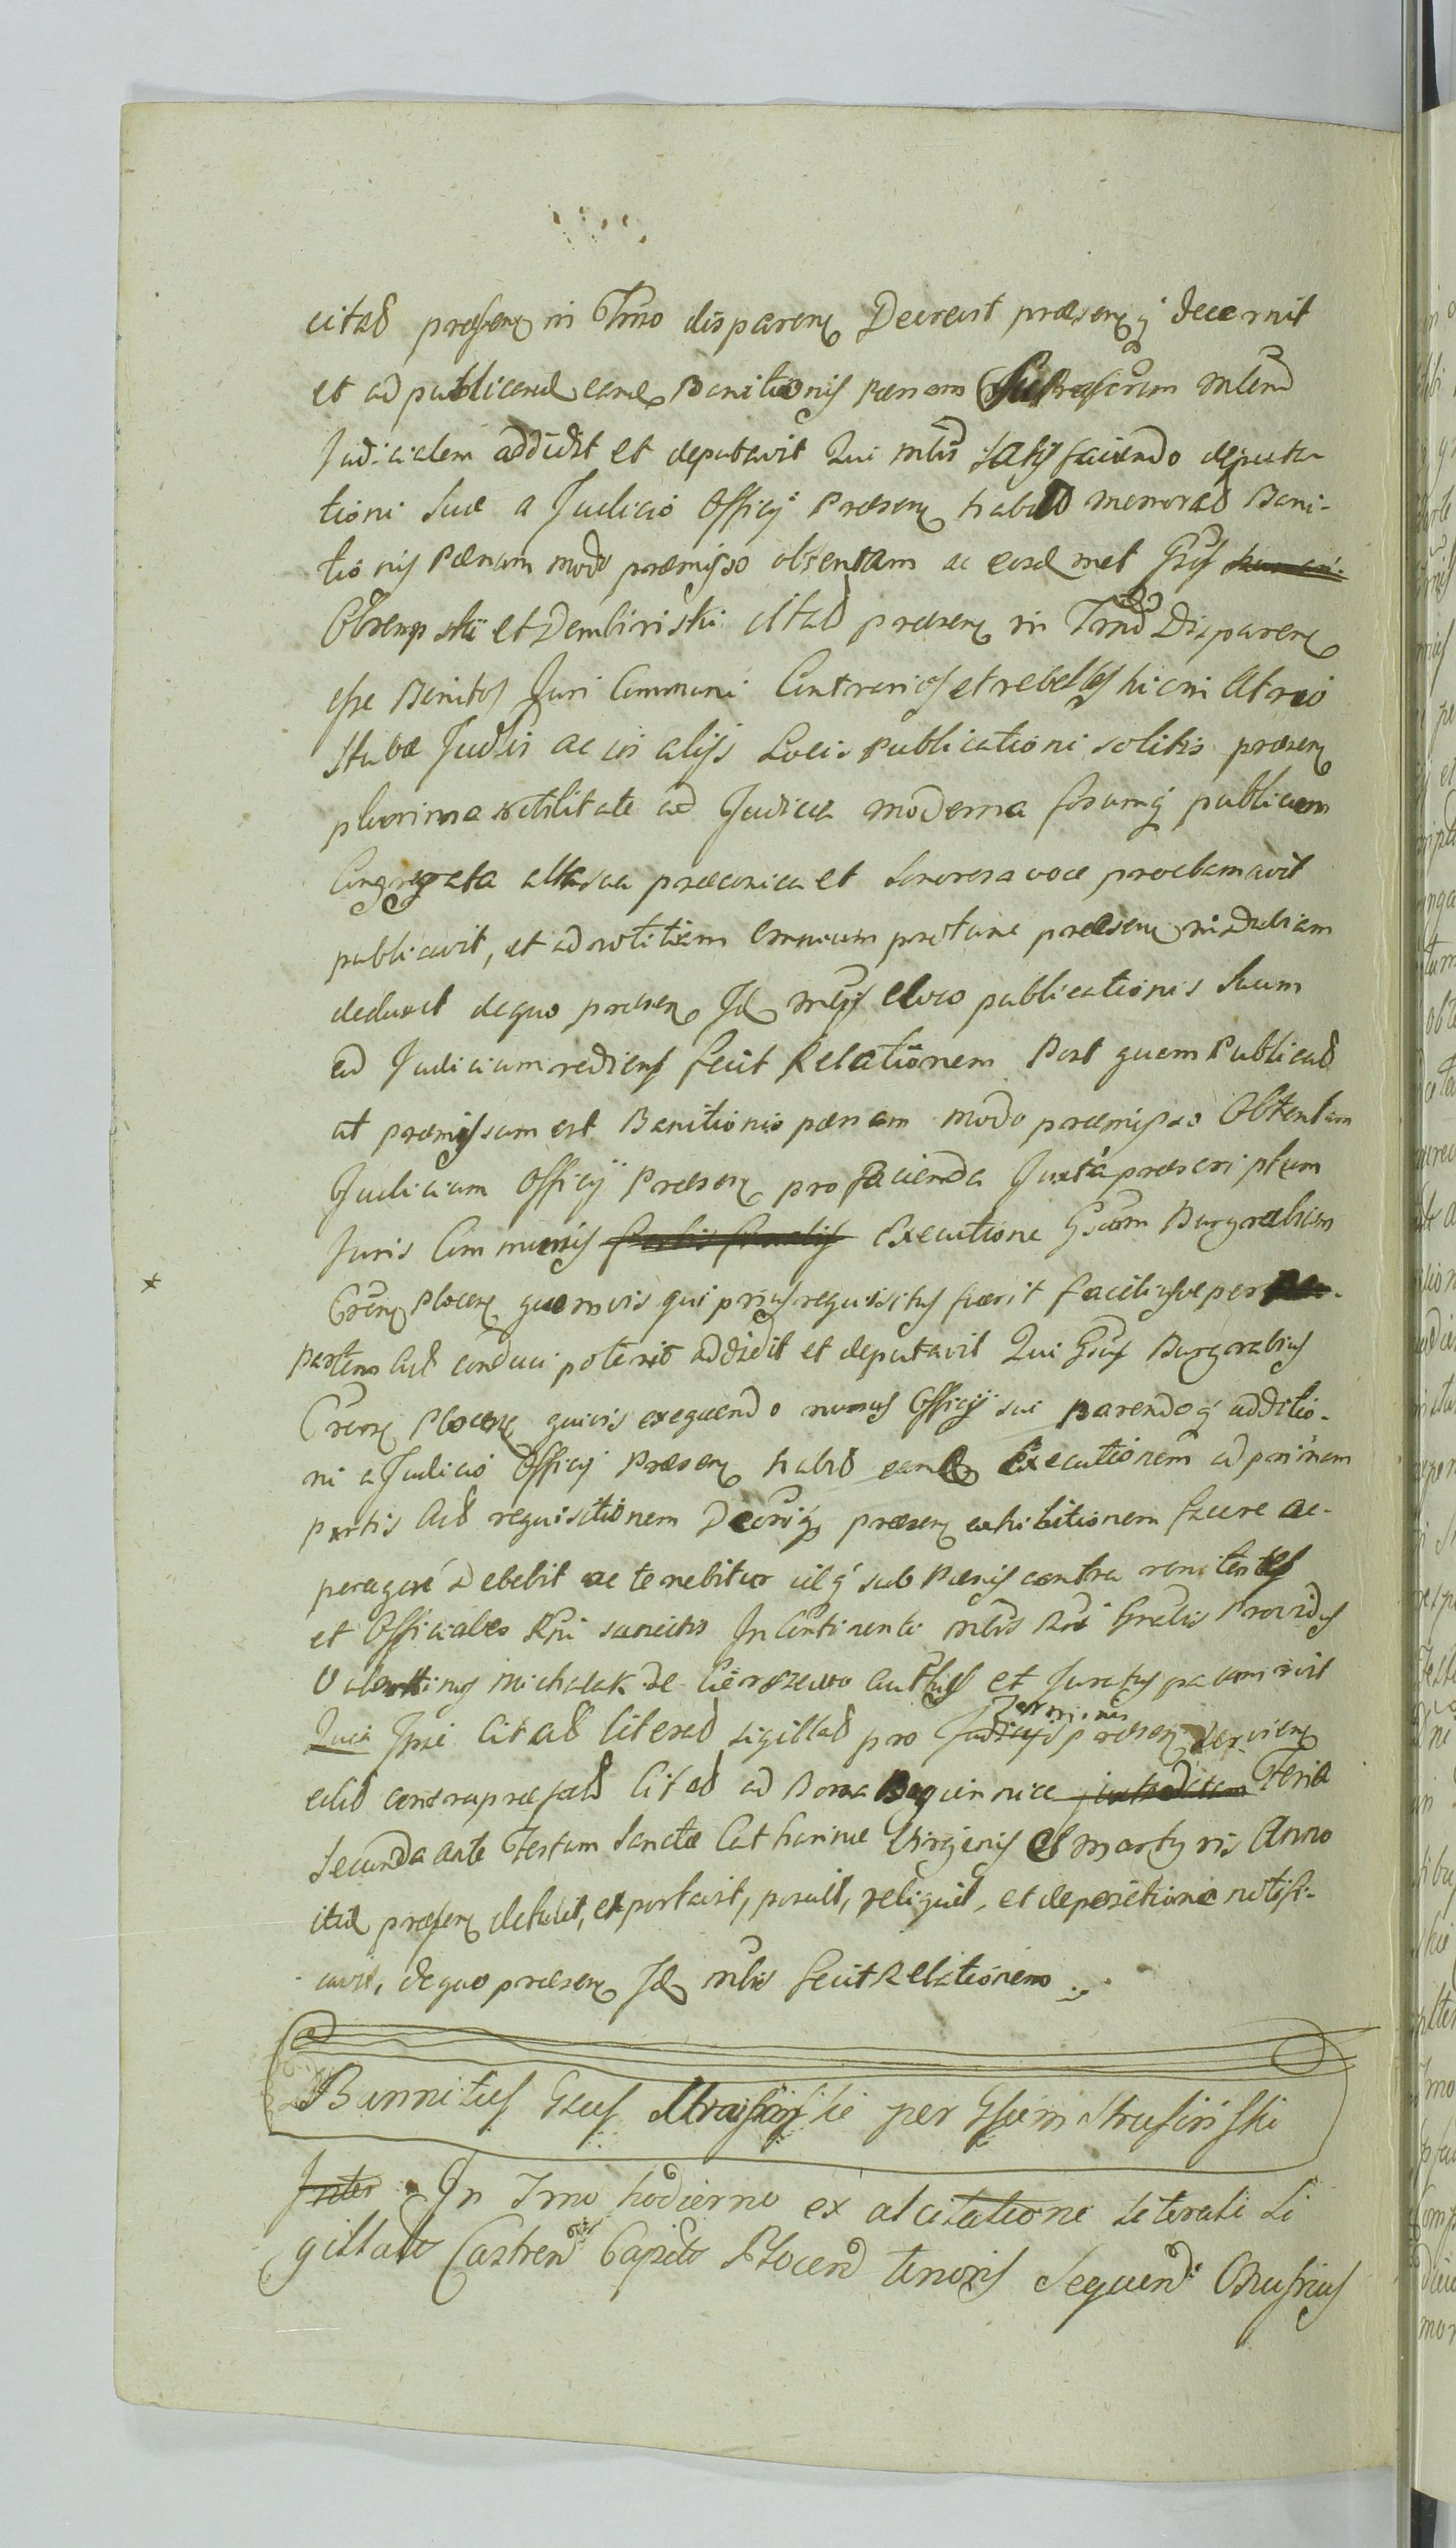 citad præsen in Tmo disparen Decrevit præsenq decernit
et ad publicand eand Banitionis Pænam Minlem
Judicialem addidit et deputavit Qui mlis satisfaciendo deputa-
tioni suæ a Judicio Officij Præsen habitæ memorad Bani-
tionis Pænam modo præmisso obtentam ac eosd met Gsos
Obremp ski et Dembinski citad præsen in Tmo Disparen
esse Banitos Juri Communi Contrarios et rebelles hic in Atrio
Stubæ Judlis ac in alijs Locis Publicationi solitis præsen
plurima nobilitate ad Judicia moderna forumq publicum
Congregata alta sua præconica et sonorosa voce proclamavit
publicavit, et ad notitiam omnium protunc præsen indubiam
deduxit de quo præsen Id mlis e loco publicationis suum
ad Judicium rediens fecit Relationem Post quam Publicad
ut præmissum est Banitionis pænam modo præmisso Obtentam
Judicium Officij Præsen pro facienda Juxta præscriptum
Juris Communis Executione Gsum Burgrabium
Cren Plocen quemvis qui prius requisitus fuerit faciliusve per
partem Act conduci poterit addidit et deputavit Qui Gsus Burgrabius
Cren Plocen quivis exequendo munus Officij sui parendoq additio-
ni a Judicio Officij Præsen habit eand Executionem ad primam
partis Act requisitionem Decriq præsen exhibitionem facere ac
peragere debebit ac tenebitur idq sub Pænis contra renitentes
et Officiales Rni sancitis In Continenti mlis Rni Gnalis Providus
Valentinus Michalak de Cierszewo authus et Juratus palam
Quia Ipse Citad Literad sigillad pro Judicijs Terminis præsen servien
edit contra præfatd Citad ad Bona juxtadictam Feria
Secunda ante Festum Sanctæ Catharinæ Virginis et Martyris Anno
itid præsen detulit, et portavit, posuit, reliquit, et depositione notifi-
cavit, de quo præsen Id mlis fecit Relationem
Bannitus Gsus per Gsum Strusinski
Inter In Tmo hodierno ex ad citatione Literali Si
gillato Castren Capitli Plocen tenoris sequen